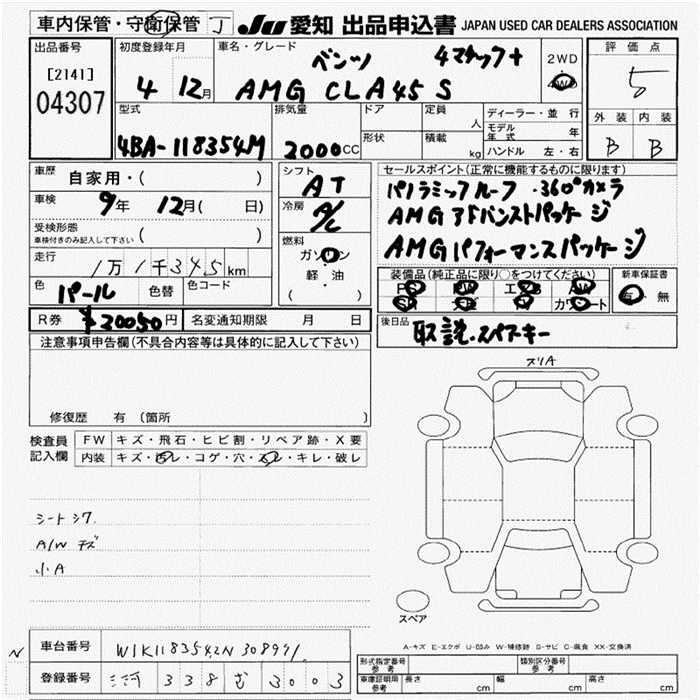 車内保管・守衛保管 J JU 愛知 出品申込書 JAPAN USED CAR DEALERS ASSOCIATION
出品番号 初度登録年月 車名・グレード ベンツ 4マチック+ 2WD 評価点
[2141] 04307 4 12月 AMG CLA45 S 4WD 5
型式 排気量 ドア 定員 人 ディーラー・並行 外装 内装
4BA-118354M 2000CC 形状 積載 kg モデル年式 年 ハンドル 左・右 B B
車歴 自家用・( ) シフト AT セールスポイント(正常に機能するものに限ります)
車検 9年 12月( 日) 冷房 A/C パノラミックルーフ・360°カメラ
受検形態 車検付きのみ記入して下さい ( ) AMGアドバンストパッケージ
走行 1万1千345km 燃料 ガソリン 軽・油 ( ・ ) AMGパフォーマンスパッケージ
色 パール 色替 色コード 装備品(純正品に限り○をつけてください) 新車保証書
PS PW エアB AW 有・無
SR ナビ カワシート
R券 ¥20050円 名変通知期限 月 日 後日品 取説・スペアキー
注意事項申告欄(不具合内容等は具体的に記入して下さい)
スリA
修復歴 有 (箇所 )
検査員記入欄 FW キズ・飛石・ヒビ割・リペア跡・X要
内装 キズ・汚レ・コゲ・穴・スレ・キレ・破レ
シートシワ
A/W キズ
小A
スペア
A-キズ E-エクボ U-凹み W-補修跡 S-サビ C-腐食 XX-交換済
N 車台番号 W1K1183542N308991 形式指定番号 参考 類別区分番号 参考
登録番号 338 む 3003 車庫証明用 参考 長さ cm 幅 cm 高さ cm